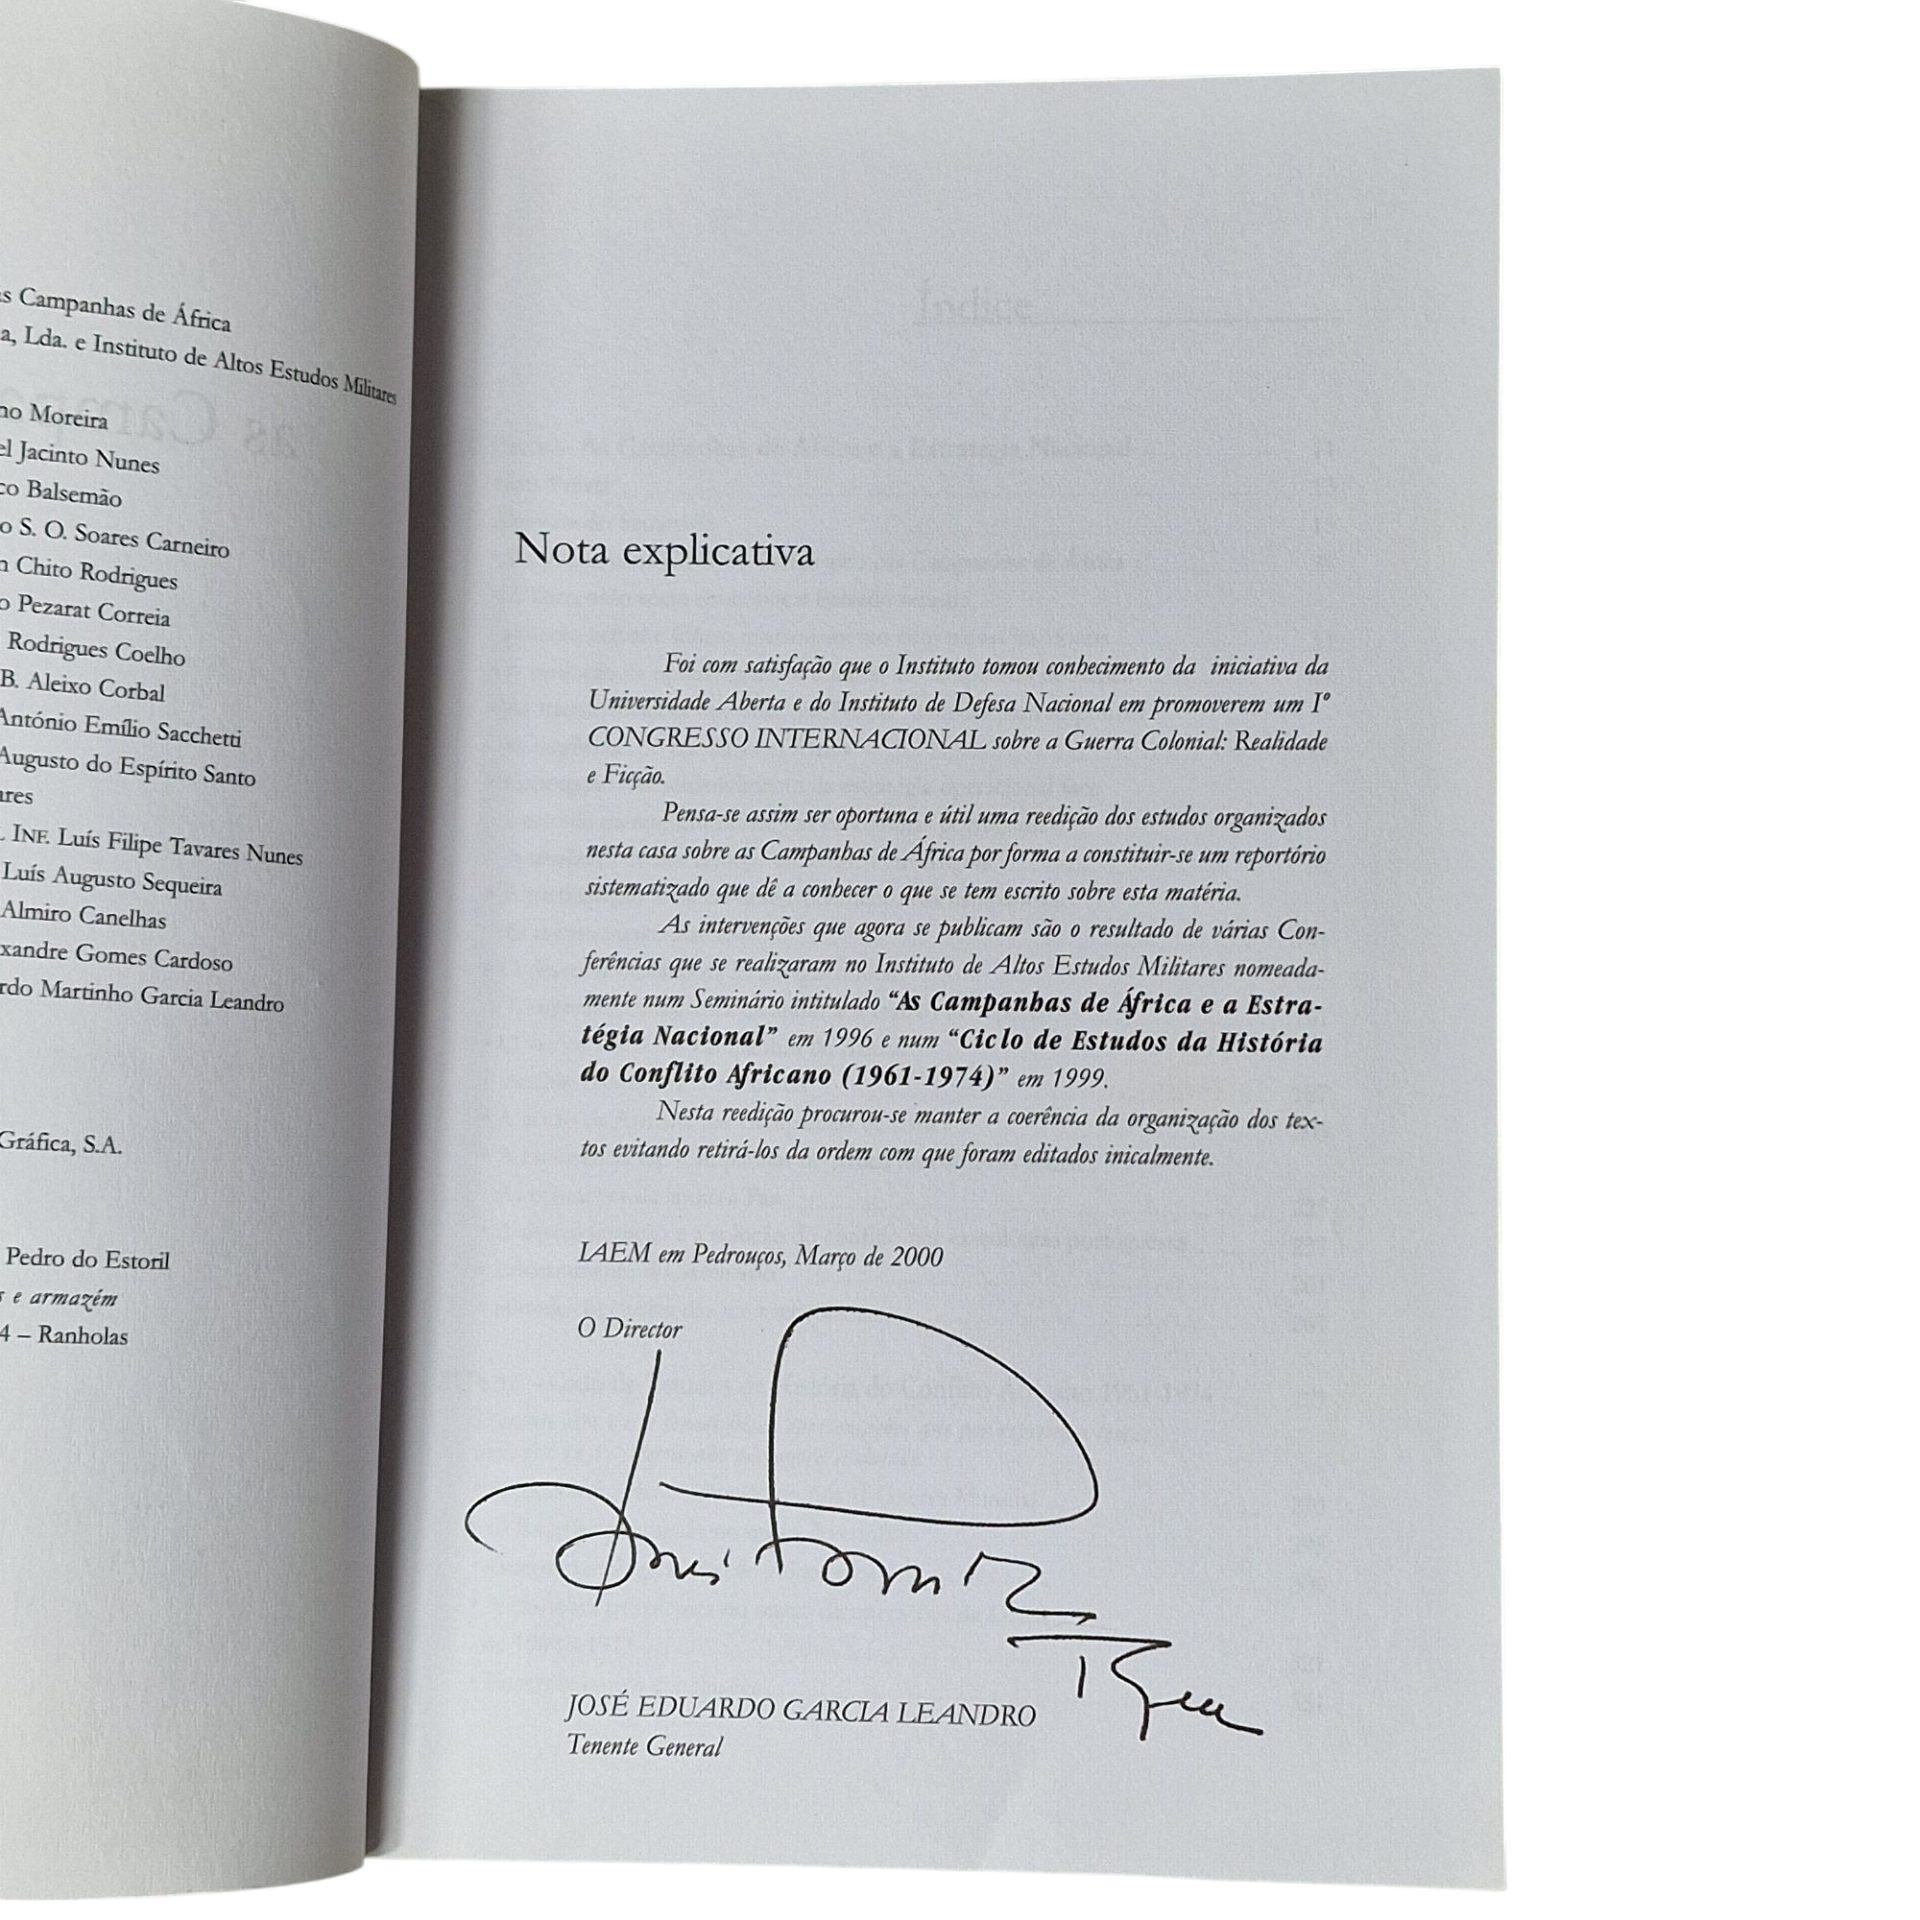 s Campanhas de África
a, Lda. e Instituto de Altos Estudos Militares
no Moreira
el Jacinto Nunes
co Balsemão
o S. O. Soares Carneiro
n Chito Rodrigues
o Pezarat Correia
Rodrigues Coelho
B. Aleixo Corbal
António Emílio Sacchetti
Augusto do Espírito Santo
ares
. INF. Luís Filipe Tavares Nunes
Luís Augusto Sequeira
Almiro Canelhas
xandre Gomes Cardoso
rdo Martinho Garcia Leandro
Gráfica, S.A.
Pedro do Estoril
s e armazém
4 – Ranholas
Índice
Nota explicativa
Foi com satisfação que o Instituto tomou conhecimento da iniciativa da
Universidade Aberta e do Instituto de Defesa Nacional em promoverem um Iº
CONGRESSO INTERNACIONAL sobre a Guerra Colonial: Realidade
e Ficção.
Pensa-se assim ser oportuna e útil uma reedição dos estudos organizados
nesta casa sobre as Campanhas de África por forma a constituir-se um reportório
sistematizado que dê a conhecer o que se tem escrito sobre esta matéria.
As intervenções que agora se publicam são o resultado de várias Con-
ferências que se realizaram no Instituto de Altos Estudos Militares nomeada-
mente num Seminário intitulado “As Campanhas de África e a Estra-
tégia Nacional” em 1996 e num “Ciclo de Estudos da História
do Conflito Africano (1961-1974)” em 1999.
Nesta reedição procurou-se manter a coerência da organização dos tex-
tos evitando retirá-los da ordem com que foram editados inicalmente.
IAEM em Pedrouços, Março de 2000
O Director
JOSÉ EDUARDO GARCIA LEANDRO
Tenente General